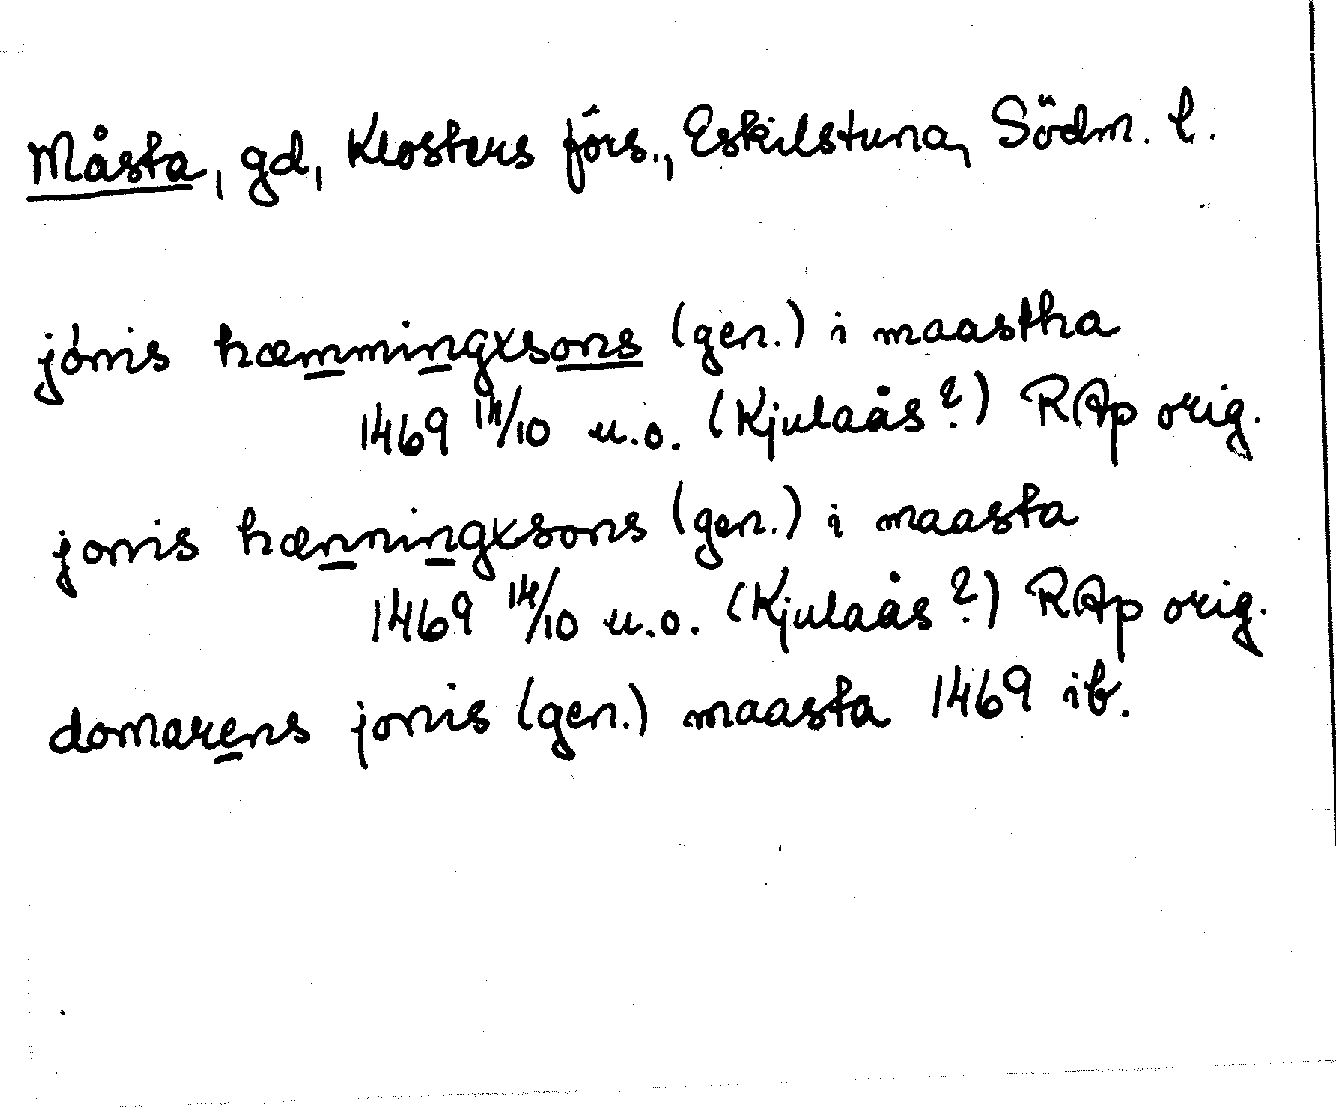 Måsta, gd, Klosters förs., Eskilstuna, Södm. l.
jónis hæmmingxsons (gen.) i maastha
1469 14/10 u.o. (Kjulaås?) RAp orig.
jonis hænningxsons (gen.) i maasta
1469 14/10 u.o. (Kjulaås?) RAp orig.
domarens jonis (gen.) maasta 1469 ib.